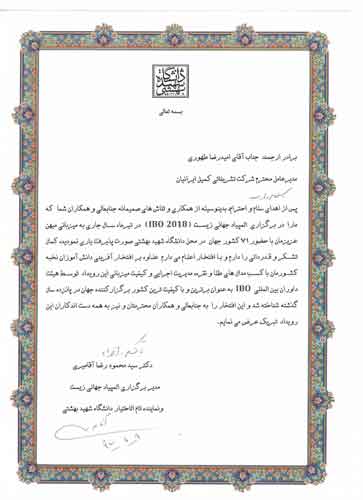 دانشگاه شهید بهشتی
بسمه تعالی
برادر ارجمند جناب آقای امیدرضا طهوری
مدیرعامل محترم شرکت تشریفاتی کمیل ایرانیان
پس از اهدای سلام و احترام، بدینوسیله از همکاری و تلاش های صمیمانه جنابعالی و همکاران شما که
ما را در برگزاری المپیاد جهانی زیست (IBO 2018) در تیرماه سال جاری به میزبانی میهن
عزیزمان با حضور ۷۱ کشور جهان در محل دانشگاه شهید بهشتی صورت پذیرفت یاری نمودید، کمال
تشکر و قدردانی را دارم و با افتخار اعلام می دارم علاوه بر افتخار آفرینی دانش آموزان نخبه
کشورمان با کسب مدال های طلا و نقره، مدیریت اجرایی و کیفیت میزبانی این رویداد توسط هیئت
داوران بین المللی IBO به عنوان برترین و با کیفیت ترین کشور برگزارکننده جهان در پانزده سال
گذشته شناخته شد و این افتخار را به جنابعالی و همکاران محترمتان و نیز به همه دست اندکاران این
رویداد تبریک عرض می نمایم.
دکتر سید محمود رضا آقامیری
مدیر برگزاری المپیاد جهانی زیست
و نماینده تام الاختیار دانشگاه شهید بهشتی